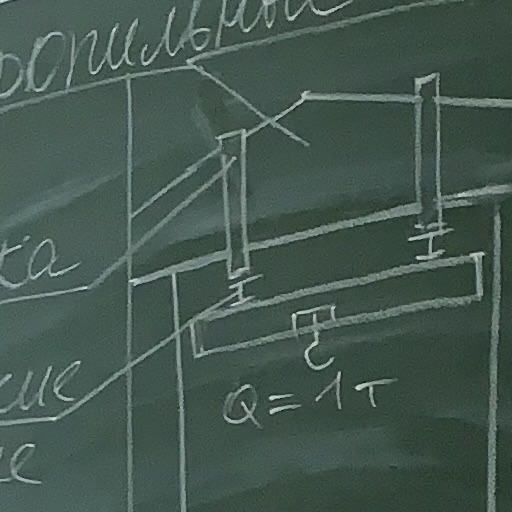 ропильный
ка
ие
е
Q=1т